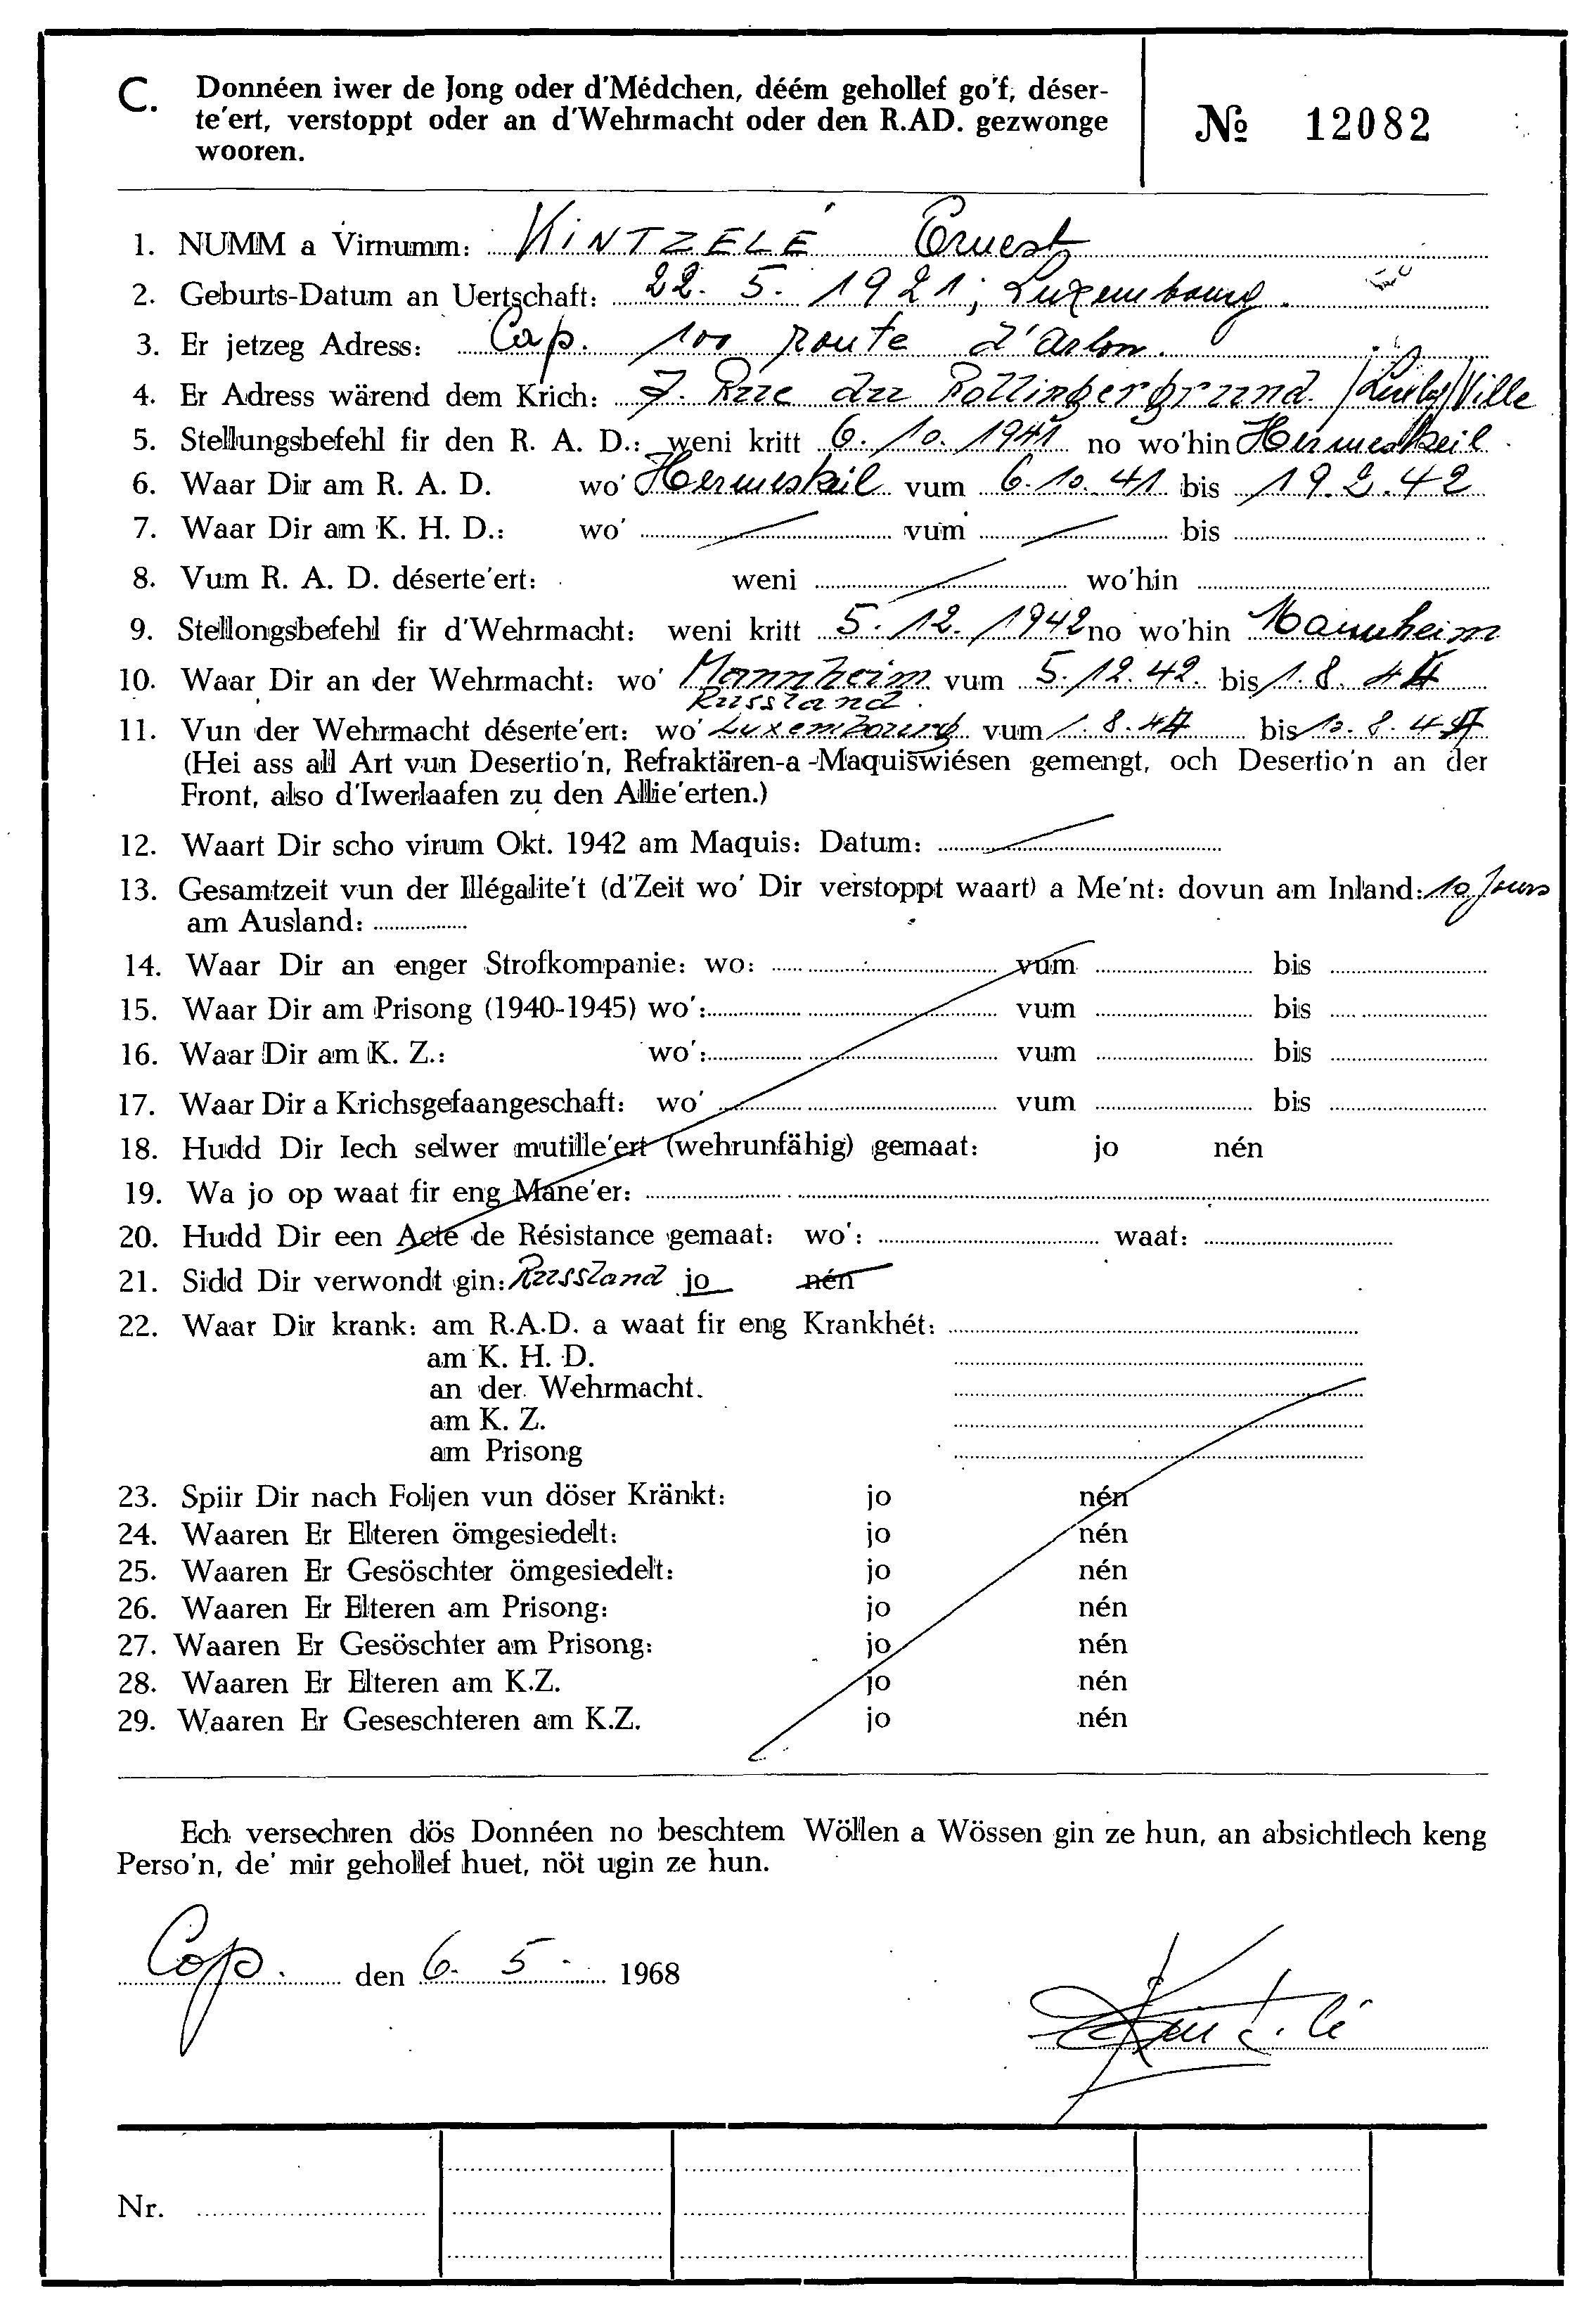 C. Donnéen iwer de Jong oder d'Médchen, déém gehollef go'f, déser-
te'ert, verstoppt oder an d'Wehrmacht oder den R.AD. gezwonge
wooren.
№ 12082
1. NUMM a Virnumm: KINTZELÉ Ernest
2. Geburts-Datum an Uertschaft: 22. 5. 1921, Luxembourg.
3. Er jetzeg Adress: Cap. 100 route d'Arlon.
4. Er Adress wärend dem Krich: 7. Rue du Rollingergrund. /Luxbg/Ville
5. Stellungsbefehl fir den R. A. D.: weni kritt 6. 10. 1941 no wo'hin Hermeskeil.
6. Waar Dir am R. A. D. wo' Hermeskeil vum 6.10.41 bis 19.2.42
7. Waar Dir am K. H. D.: wo' vum bis
8. Vum R. A. D. déserte'ert: weni wo'hin
9. Stellongsbefehl fir d'Wehrmacht: weni kritt 5. 12. 1942 no wo'hin Mannheim
10. Waar Dir an der Wehrmacht: wo' Mannheim vum 5.12.42. bis 1.8.44
Russland.
11. Vun der Wehrmacht déserte'ert: wo' Luxembourg vum 1.8.44 bis 10.8.44
(Hei ass all Art vun Desertio'n, Refraktären-a -Maquiswiésen gemengt, och Desertio'n an der
Front, also d'Iwerlaafen zu den Allie'erten.)
12. Waart Dir scho virum Okt. 1942 am Maquis: Datum:
13. Gesamtzeit vun der Illégalite't (d'Zeit wo' Dir verstoppt waart) a Me'nt: dovun am Inland: 10 Jours
am Ausland:
14. Waar Dir an enger Strofkompanie: wo: vum bis
15. Waar Dir am Prisong (1940-1945) wo': vum bis
16. Waar Dir am K. Z.: wo': vum bis
17. Waar Dir a Krichsgefaangeschaft: wo' vum bis
18. Hudd Dir Iech selwer mutille'ert (wehrunfähig) gemaat: jo nén
19. Wa jo op waat fir eng Mane'er:
20. Hudd Dir een Acte de Résistance gemaat: wo': waat:
21. Sidd Dir verwondt gin: Russland jo nén
22. Waar Dir krank: am R.A.D. a waat fir eng Krankhét:
am K. H. D.
an der Wehrmacht.
am K. Z.
am Prisong
23. Spiir Dir nach Foljen vun döser Kränkt: jo nén
24. Waaren Er Elteren ömgesiedelt: jo nén
25. Waaren Er Gesöschter ömgesiedelt: jo nén
26. Waaren Er Elteren am Prisong: jo nén
27. Waaren Er Gesöschter am Prisong: jo nén
28. Waaren Er Elteren am K.Z. jo nén
29. Waaren Er Geseschteren am K.Z. jo nén
Ech versechren dös Donnéen no beschtem Wöllen a Wössen gin ze hun, an absichtlech keng
Perso'n, de' mir gehollef huet, nöt ugin ze hun.
Cap. den 6. 5. 1968
Kintzelé
Nr.